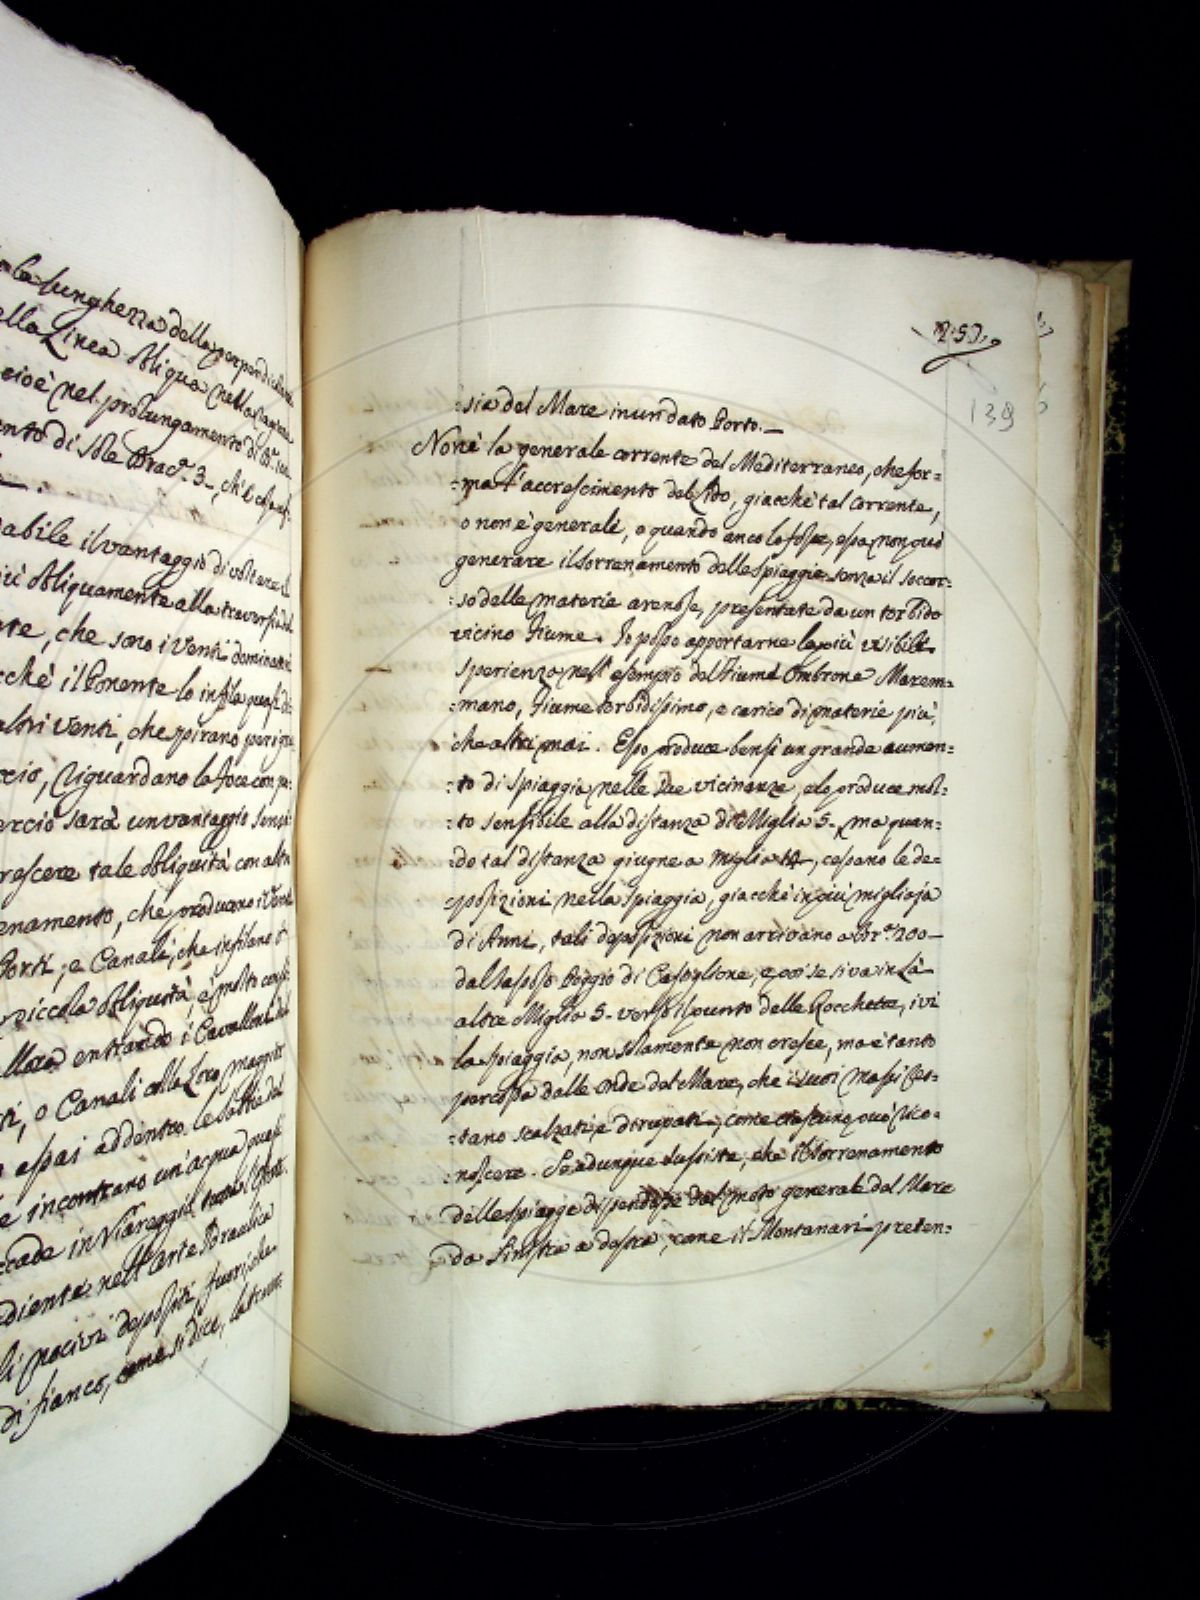 la lunghezza della perpendicolare
ella Linea obliqua nella
cioè nel prolungamento di
ento di Sole Brac.ª 3-, ch'è
abile il vantaggio di voltare
più obliquamente alla traversia
nte, che sono i Venti dominanti
cchè il Ponente lo infila quasi di-
altri Venti, che spirano per
cio, riguardano la foce con
ercio sarà un vantaggio
rescere tale obliquità con altri
enamento, che producono i Venti
Porti, e Canali, che infilano
piccola obliquità, e molto
allora entrando i Cavalloni del
ri, o Canali colla loro maggior
assai addentro le sabbie del
e incontrano un'acqua quasi
ccade in Viareggio, tutti
diente nell'arte Idraulica
li nocivi depositi, fuori che
di fianco, come si dice, la
n: 5:),
139
:sia del Mare inundato Porto. —
Non è la generale corrente del Mediterraneo, che for-
:ma l'accrescimento del Lido, giacchè tal corrente,
o non è generale, o quando anco lo fosse, essa non può
generare il sorrenamento delle spiaggie senza il soccor-
:so delle materie arenose, presentate da un torbido
vicino Fiume. Io posso apportarne la più visibile
sperienza nell'esempio del Fiume Ombrone Marem=
:mano, Fiume torbidissimo, e carico di materie più,
che altri mai. Esso produce bensì un grande aumen=
:to di spiaggia nelle sue vicinanze, e lo produce mol-
:to sensibile alla distanza di Miglia 5-, ma quan=
:do tal distanza giugne a Miglia, cessano le de=
:posizioni nella spiaggia, giacchè in più migliaja
di Anni, tali deposizioni non arrivano a Br.ª 200 —
dal sassoso Poggio di Castiglione, e poi se si va in là
altre Miglia 5- verso il punto delle Rocchette, ivi
la spiaggia, non solamente non cresce, ma è tanto
percossa dalle onde del Mare, che i suoi massi res-
:tano scalzati, e dirupati, come ciascuno può rico=
:noscere. Se adunque sussiste, che il sorrenamento
delle spiagge dipendesse dal moto generale del Mare
da sinistra a destra, come il Montanari preten=